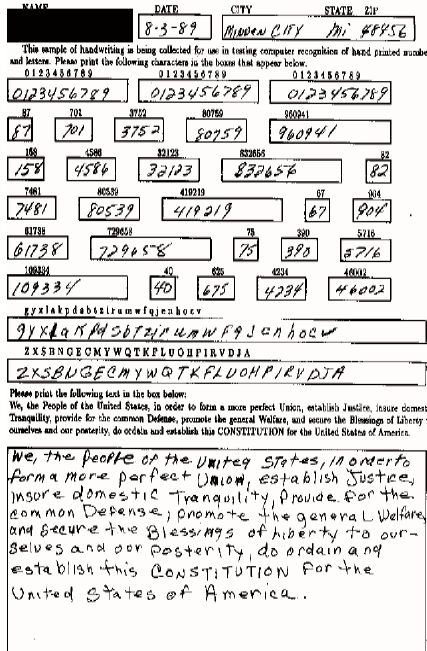 NAME DATE CITY STATE ZIP
8-3-89 MINDEN CITY Mi 48456
This sample of handwriting is being collected for use in testing computer recognition of hand printed numbers
and letters. Please print the following characters in the boxes that appear below.
0123456789 0123456789 0123456789
0123456789 0123456789 0123456789
87 701 3752 80759 960941
87 701 3752 80759 960941
158 4586 32123 832656 82
158 4586 32123 832656 82
7481 80539 419219 67 904
7481 80539 419219 67 904
61738 729658 75 390 5716
61738 729658 75 390 5716
109334 40 625 4234 46002
109334 40 675 4234 46002
gyxlakpdsbtzirumwfqjenhocv
gyxlakpdsbtzirumwfqjenhocv
ZXSBNGECMYWQTKFLUOHPIRVDJA
ZXSBNGECMYWQTKFLUOHPIRVDJA
Please print the following text in the box below:
We, the People of the United States, in order to form a more perfect Union, establish Justice, insure domest
Tranquility, provide for the common Defense, promote the general Welfare, and secure the Blessings of Liberty
ourselves and our posterity, do ordain and establish this CONSTITUTION for the United States of America.
We, the People of the United States, in order to
form a more perfect Union, establish Justice,
insure domestic Tranquility, Provide for the
common Defense, promote the general Welfare,
and secure the Blessings of Liberty to our-
selves and our Posterity, do ordain and
establish this CONSTITUTION for the
United States of America.